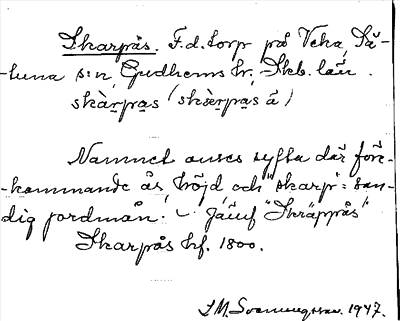 Skarpås. F.d. torp på Veka, Så-
-tuna s:n, Gudhems hr, Skb. län.
skàrpas (skàrpas å)
Namnet anses syfta där före-
-kommande ås, höjd och "skarp": san-
dig jordmån. Jämf "Skräppås"
Skarpås hf. 1800.
1947.